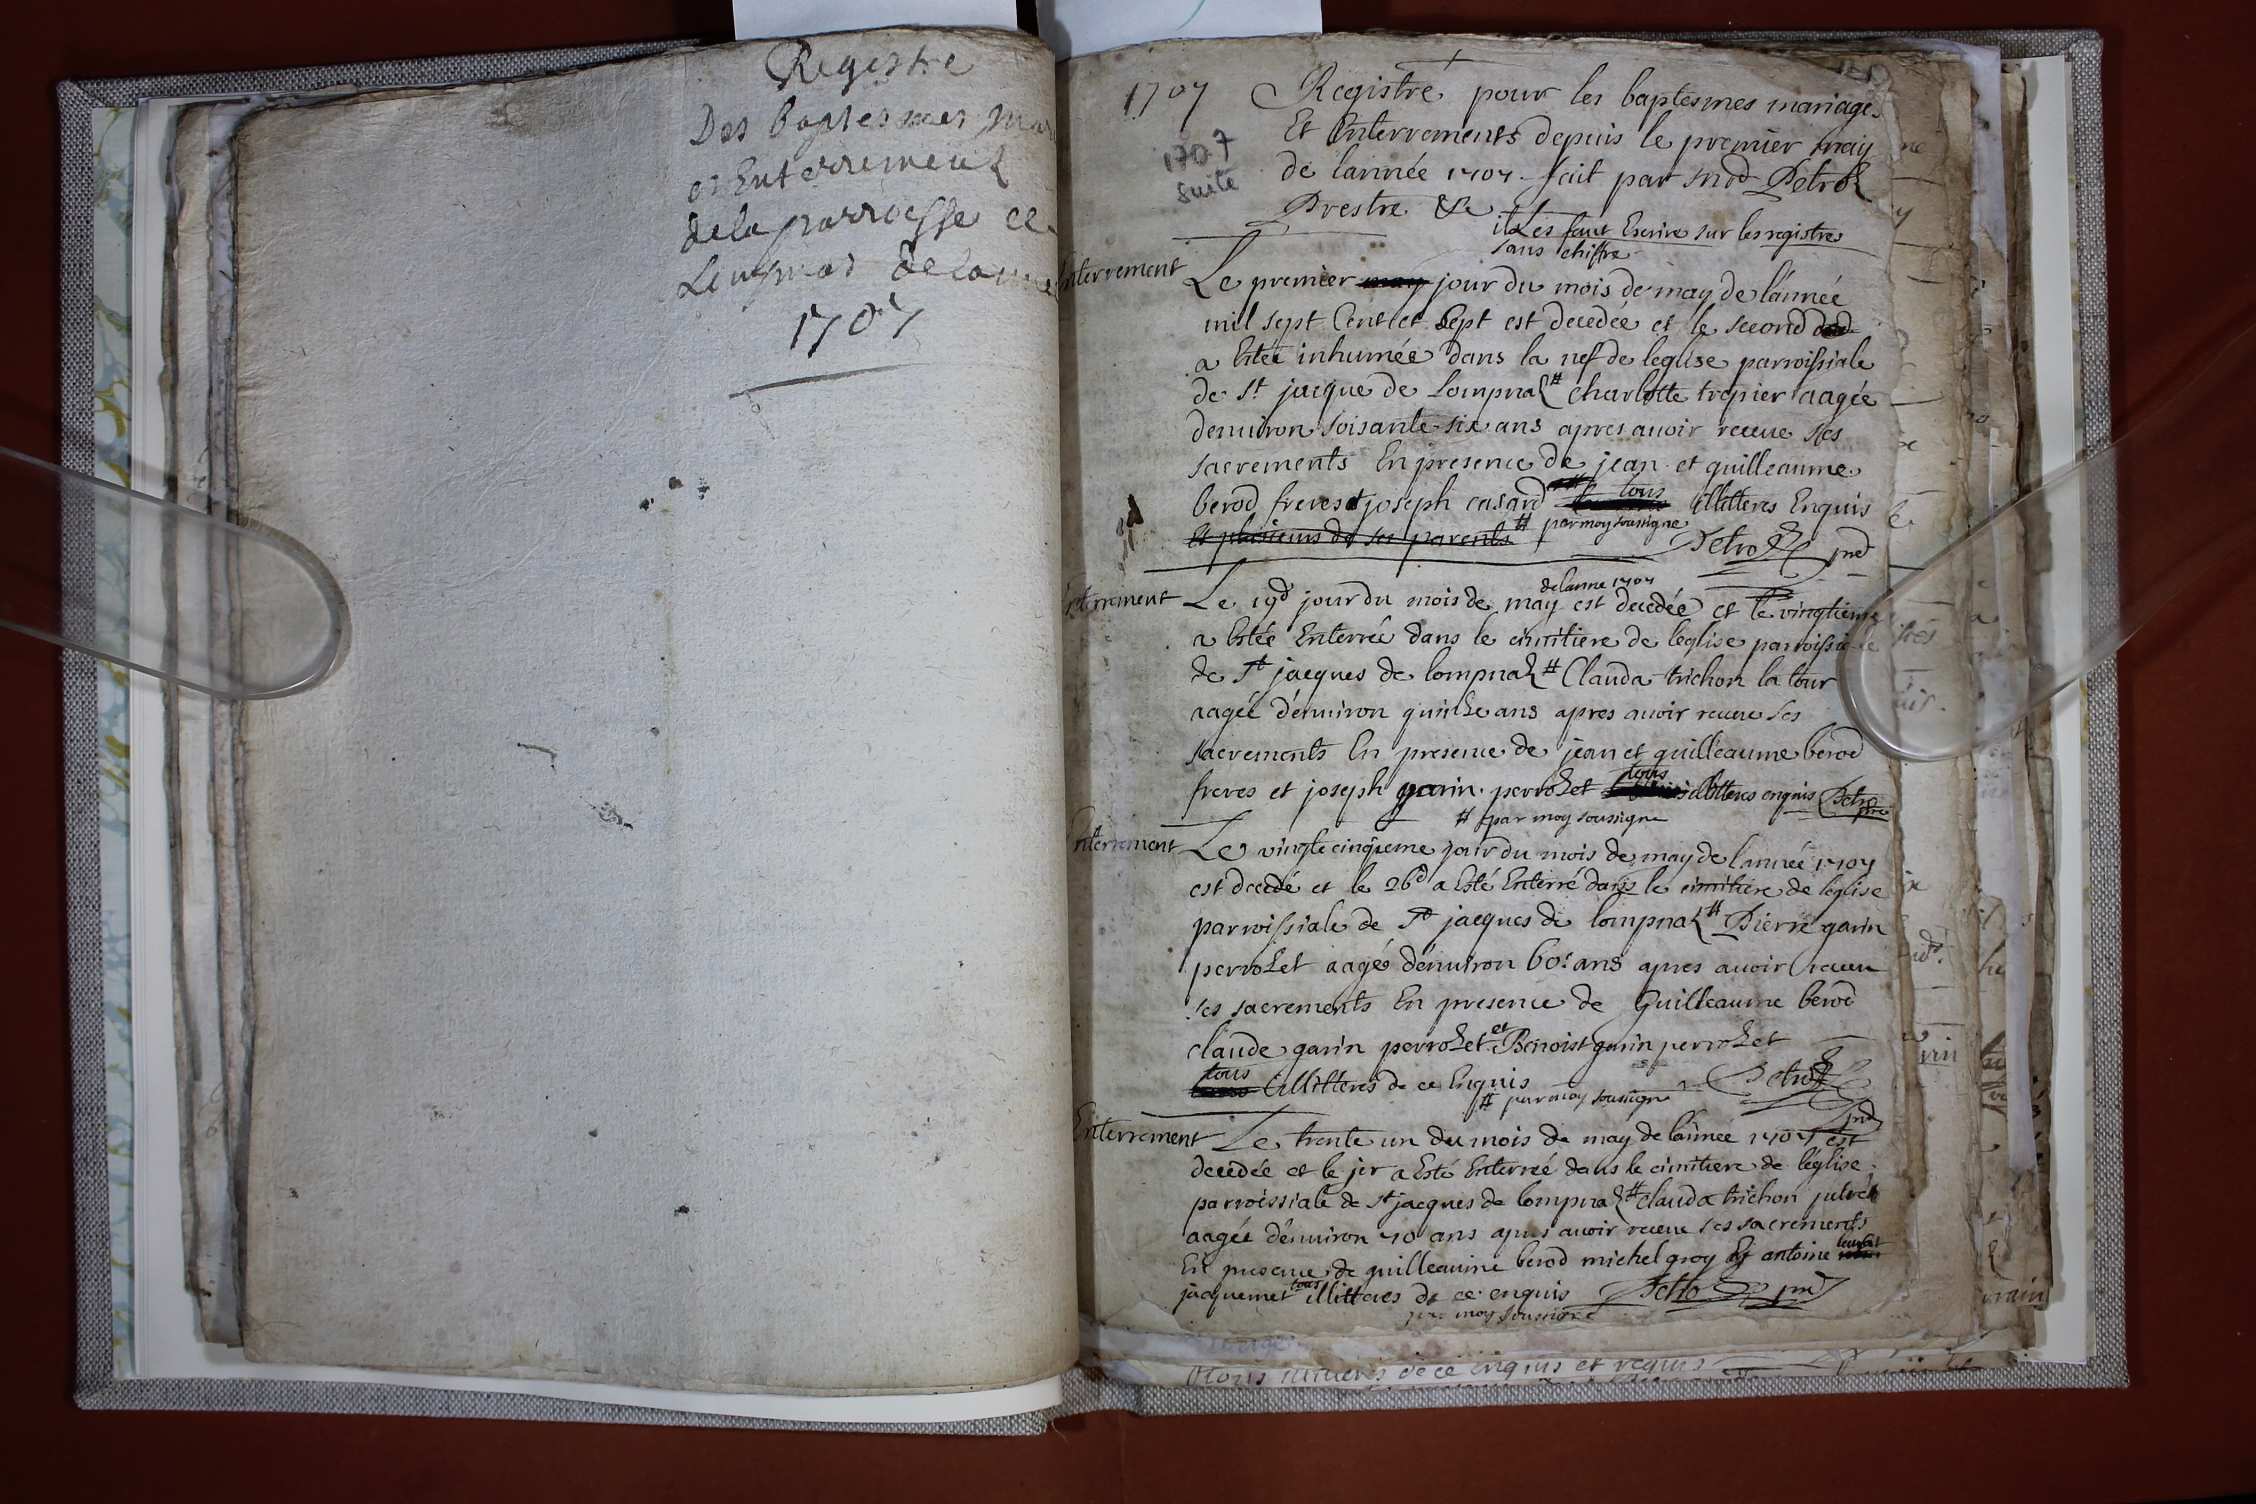 Registre
Des Baptesmes Mar
et Enterrement
de la parroisse de
Lompnas de lanne
1707
1707 Registre pour les baptesmes mariages
Et Enterrements depuis le premier may
1707
suite
de lannée 1707 fait par moy Petroz
Prestre &c
il Les faut Escrire sur les registres
sans chiffre
Enterrement Le premier may jour du mois de may de lannée
mil sept Cent et sept est decedée et le second
a Estée inhumée dans la nef de leglise parroissiale
de St jacque de Lompnaz # Charlotte trepier aagée
denuiron soisante six ans apres auoir receue ses
sacrements En presence de jean et guilleaume
berod freres et joseph casard tous illitteres Enquis
et plusieurs de ses parents # par moy soussigne
Petroz pred
Enterrement Le 19d jour du mois de may de lanne 1707 est decedée et le vingtieme
a Estée Enterrée dans le cimitiere de leglise parroissiale
de St jacques de lompnaz # Clauda trichon la tour
aagée d'enuiron quinze ans apres auoir receue ses
sacrements En presence de jean et guilleaume berod
freres et joseph garin perrozet tous illitteres enquis Petroz pre
# par moy soussigne
Enterrement Le vingtecinqieme jour du mois de may de lannée 1707
est decedé et le 26d a Esté Enterré dans le cimitiere de leglise
parroissiale de St jacques de lompnaz # Pierre garin
perrozet aagé denuiron 60 ans apres auoir receu
ses sacrements En presence de Guilleaume berod
claude garin perrozet et Benoist garin perrozet
tous illitteres de ce Enquis Petroz
# par moy soussigne pred
Enterrement Le trente un du mois de may de lannee 1707 est
decedée et le jer a Esté Enterreé dans le cimitiere de léglise
parroissiale de St jacques de lompnaz # clauda trichon
aagée d'enuiron 70 ans apres auoir receue ses sacrements
En presence de guilleaume berod michel groy et antoine
jacquemet tous illitteres de ce enquis Petroz pred
par moy soussigne
tous illitteres de ce enquis et requis